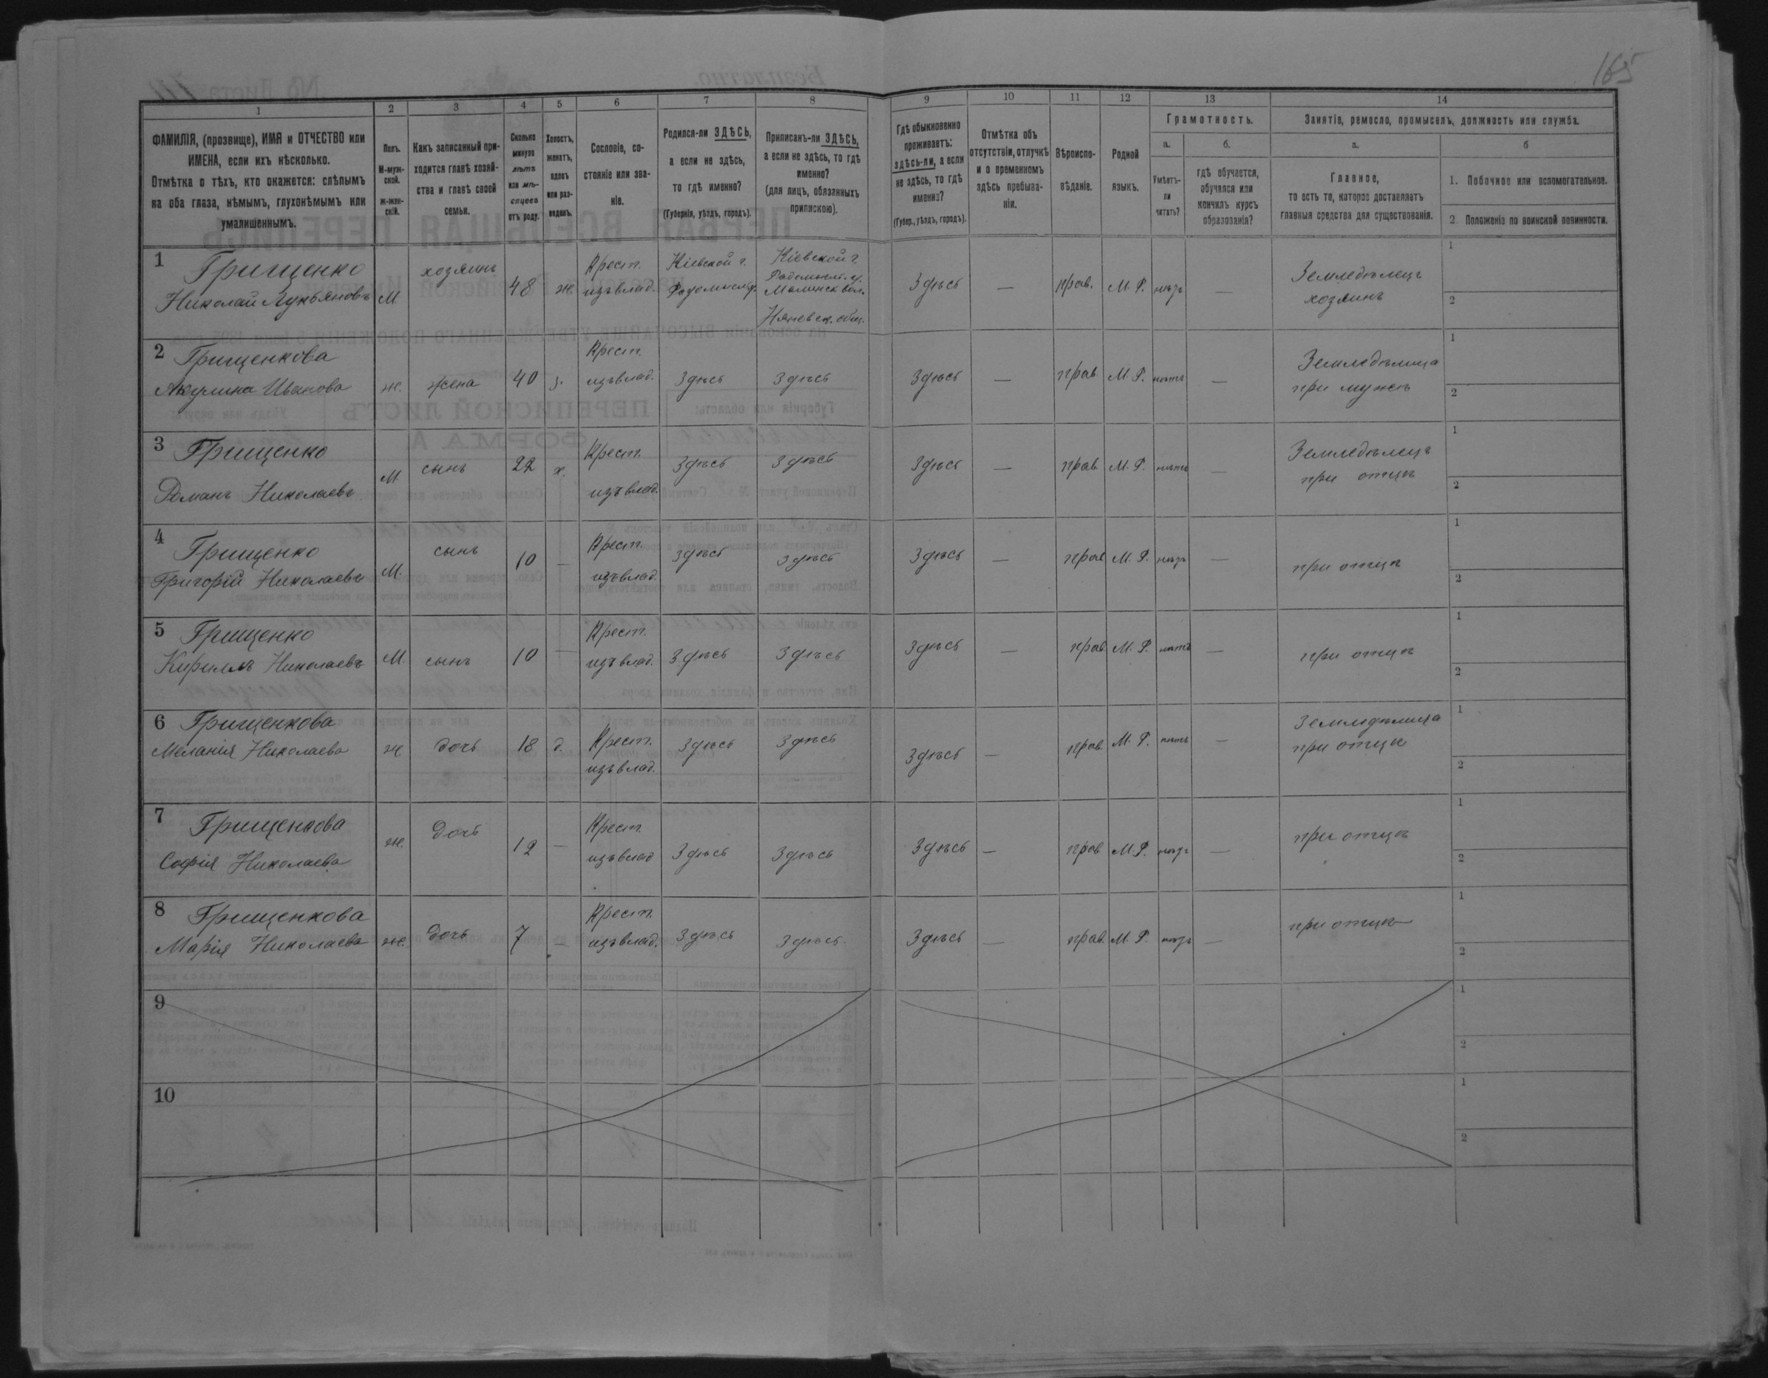 165
1 2 3 4 5 6 7 8 9 10 11 12 13 14
ФАМИЛІЯ, (прозвище), ИМЯ и ОТЧЕСТВО или
ИМЕНА, если ихъ нѣсколько.
Отмѣтка о тѣхъ, кто окажется: слѣпымъ
на оба глаза, нѣмымъ, глухонѣмымъ или
умалишеннымъ.
Полъ.
М-муж-
ской.
ж-жен-
скій.
Какъ записанный при-
ходится главѣ хозяй-
ства и главѣ своей
семьи.
Сколько
минуло
лѣтъ
или мѣ-
сяцевъ
отъ роду.
Холостъ,
женатъ,
вдовъ
или раз-
веденъ.
Сословіе, со-
стояніе или зва-
ніе.
Родился-ли ЗДѢСЬ,
а если не здѣсь,
то гдѣ именно?
(Губернія, уѣздъ, городъ).
Приписанъ-ли ЗДѢСЬ,
а если не здѣсь, то гдѣ
именно?
(для лицъ, обязанныхъ
припискою).
Гдѣ обыкновенно
проживаетъ:
здѣсь-ли, а если
не здѣсь, то гдѣ
именно?
(Губер., уѣздъ, городъ).
Отмѣтка объ
отсутствіи, отлучкѣ
и о временномъ
здѣсь пребыва-
ніи.
Вѣроиспо-
вѣданіе.
Родной
языкъ.
Грамотность.
а.
Умѣетъ-
ли
читать?
б.
гдѣ обучается,
обучался или
кончилъ курсъ
образованія?
Занятіе, ремесло, промыселъ, должность или служба.
а.
Главное,
то есть то, которое доставляетъ
главныя средства для существованія.
б
1. Побочное или вспомогательное.
2 Положеніе по воинской повинности.
1 Грищенко
Николай Лукьяновъ М хозяинъ 48 ж. Крест. изъ влад. Кіевской г. Радомысл. у.
Кіевской г.
Радомысл. у.
Малинск. вол.
общ.
Здѣсь — прав. М. Р. нѣтъ — Земледѣлецъ
хозяинъ
1
2
2 Грищенкова
Акулина Иванова ж. жена 40 з. Крест. изъ влад. Здѣсь Здѣсь Здѣсь — прав М. Р. нѣтъ — Земледѣлица
при мужѣ
1
2
3 Грищенко
Романъ Николаевъ М сынъ 22 х. Крест. изъ влад. Здѣсь Здѣсь Здѣсь — прав М. Р. нѣтъ — Земледѣлецъ
при отцѣ
1
2
4 Грищенко
Григорій Николаевъ М. сынъ 10 — Крест. изъ влад. Здѣсь Здѣсь Здѣсь — прав М. Р. нѣтъ — при отцѣ
1
2
5 Грищенко
Кириллъ Николаевъ М сынъ 10 — Крест. изъ влад. Здѣсь Здѣсь Здѣсь — прав М. Р. нѣтъ — при отцѣ
1
2
6 Грищенкова
Меланія Николаева ж дочь 18 д. Крест. изъ влад. Здѣсь Здѣсь Здѣсь — прав М. Р. нѣтъ — Земледѣлица
при отцѣ
1
2
7 Грищенкова
Софія Николаева ж. дочь 12 — Крест. изъ влад Здѣсь Здѣсь Здѣсь — прав М. Р. нѣтъ — при отцѣ
1
2
8 Грищенкова
Марія Николаева ж. дочь 7 — Крест. изъ влад. Здѣсь Здѣсь Здѣсь — прав. М. Р. нѣтъ — при отцѣ
1
2
9
1
2
10
1
2